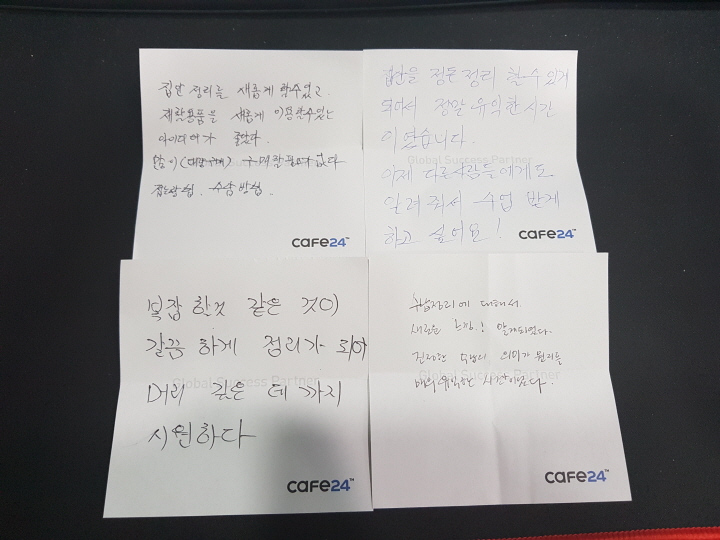 집안 정리를 새롭게 할수있고
재활용품을 새롭게 이용할수있는
아이디어가 좋았다.
많이 구매할필요가 없다
접는방법. 수납방법.
CaFe24™
집안을 정돈 정리 할수 있게
되어서 정말 유익한 시간
이었습니다.
Global Success Partner
이제 다른사람들에게도
알려줘서 수업 받게
하고 싶어요!
CaFe24™
복잡 한것 같은 것이
깔끔 하게 정리가 되어
Global Success Partner
머리 깊은 데 까지
시원하다
CaFe24™
수납정리에 대해서
새로운 알게되었다.
진정한 수납의 의미가 뭔지를
Global Success Partner
매우 유익한 시간이었다.
CaFe24™